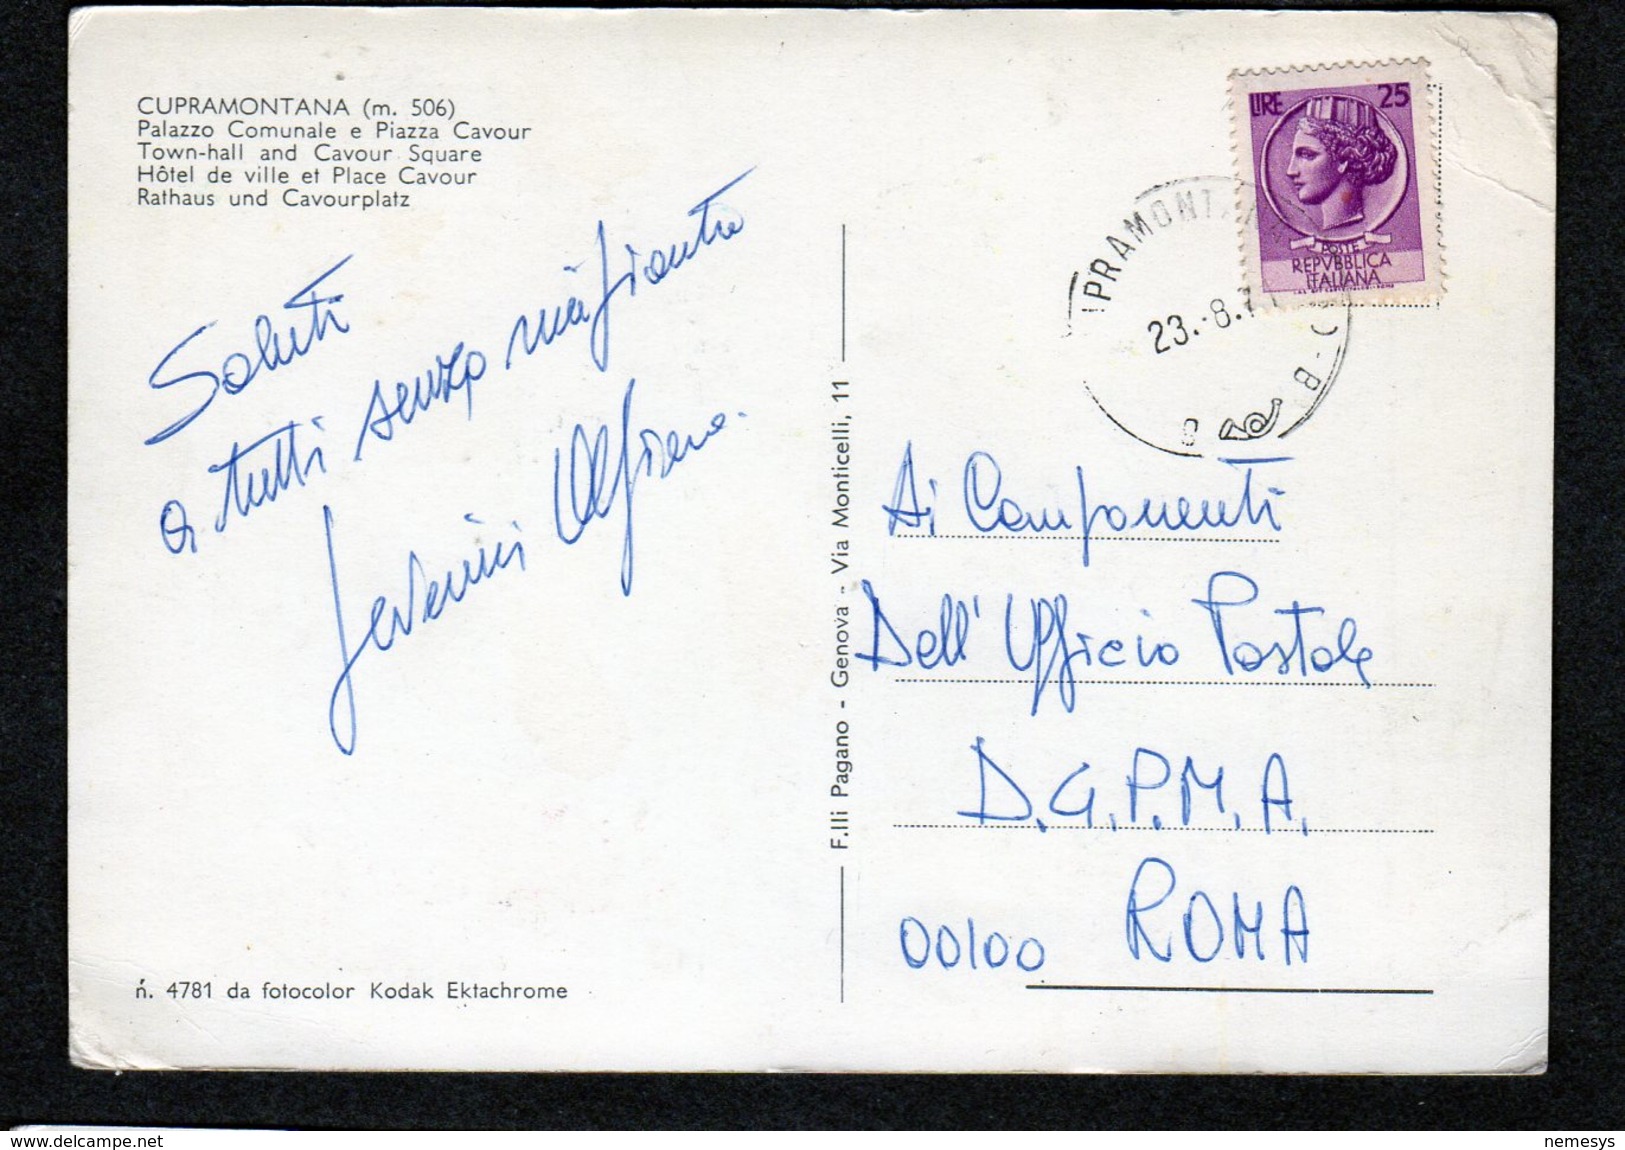 CUPRAMONTANA (m. 506)
Palazzo Comunale e Piazza Cavour
Town-hall and Cavour Square
Hôtel de ville et Place Cavour
Rathaus und Cavourplatz
Saluti
a tutti senza
Severini
ń. 4781 da fotocolor Kodak Ektachrome
F.lli Pagano - Genova - Via Monticelli, 11
LIRE 25
POSTE
REPVBBLICA
ITALIANA
PRAMONT
23.-8.7
Ai Componenti
Dell'Ufficio Postale
D.G.P.M.A.
00100 ROMA
www.delcampe.net
nemesys